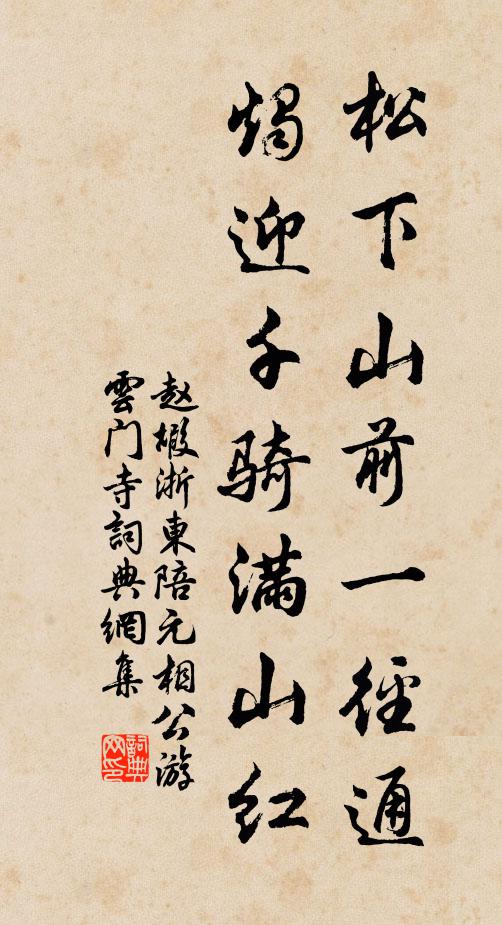 松下山前一径通
烛迎千骑满山红
赵嘏浙東陪元相公游
雲门寺詞典網集
詞典网印